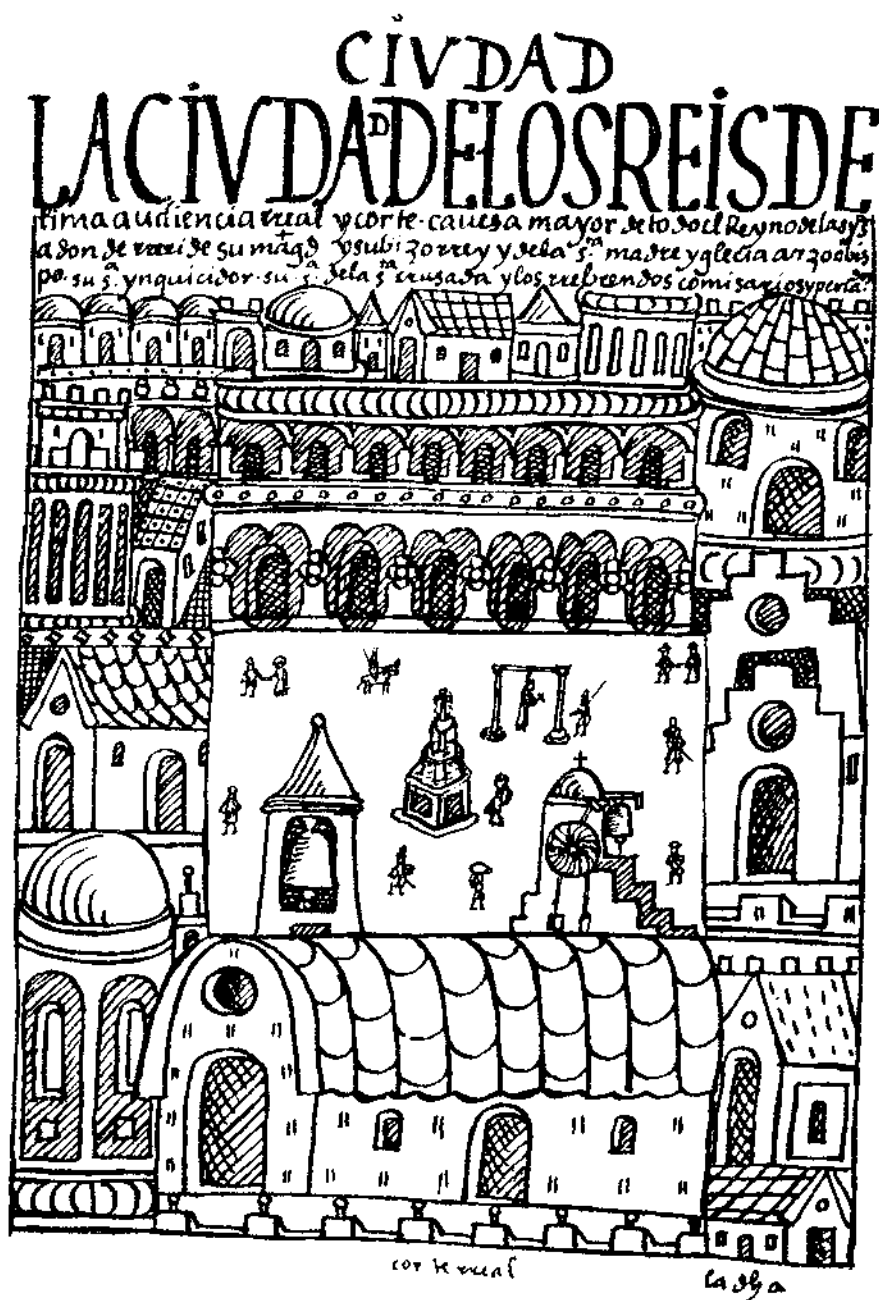 CIVDAD
LA CIVDAD DE LOS REIS DE
lima audiencia rreal y corte. cauesa mayor de todo el Reyno de las ys
a donde rrecide su magd y su bizorrey y de la s.ta madre yglecia arzobis
po. su s.a ynquicidor. su s.a de la s.ta crusada y los rrebrendos comisarios y perla dos
corte rreal
la dha